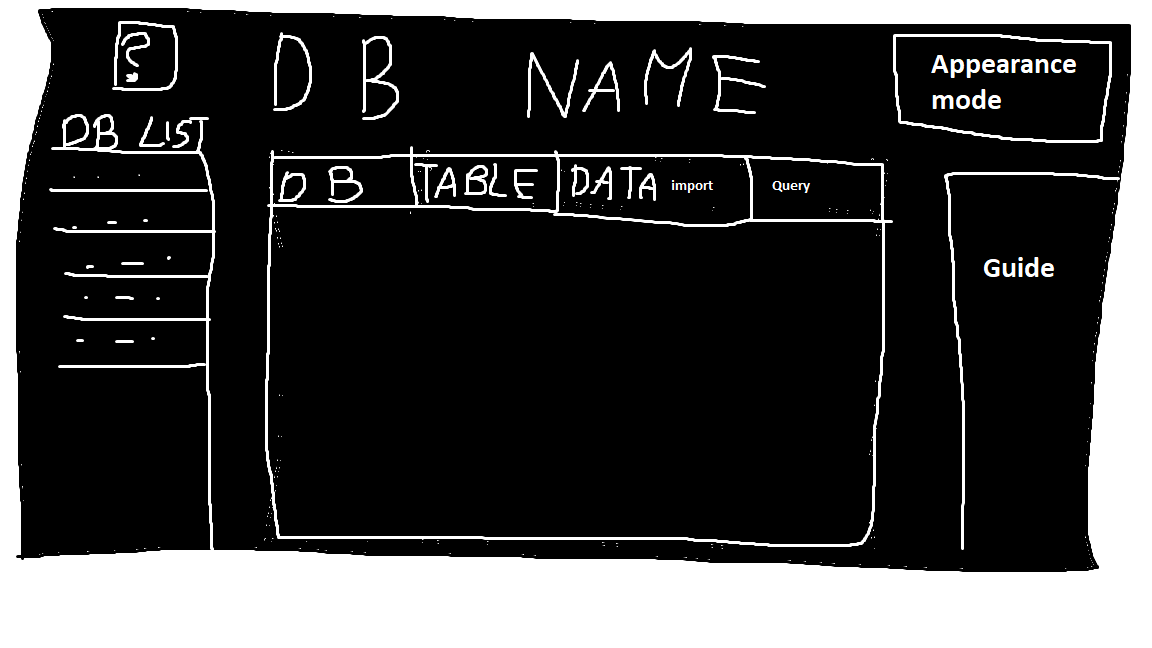 ?
DB NAME
Appearance
mode
DB LIST
DB
TABLE
DATA import
Query
Guide